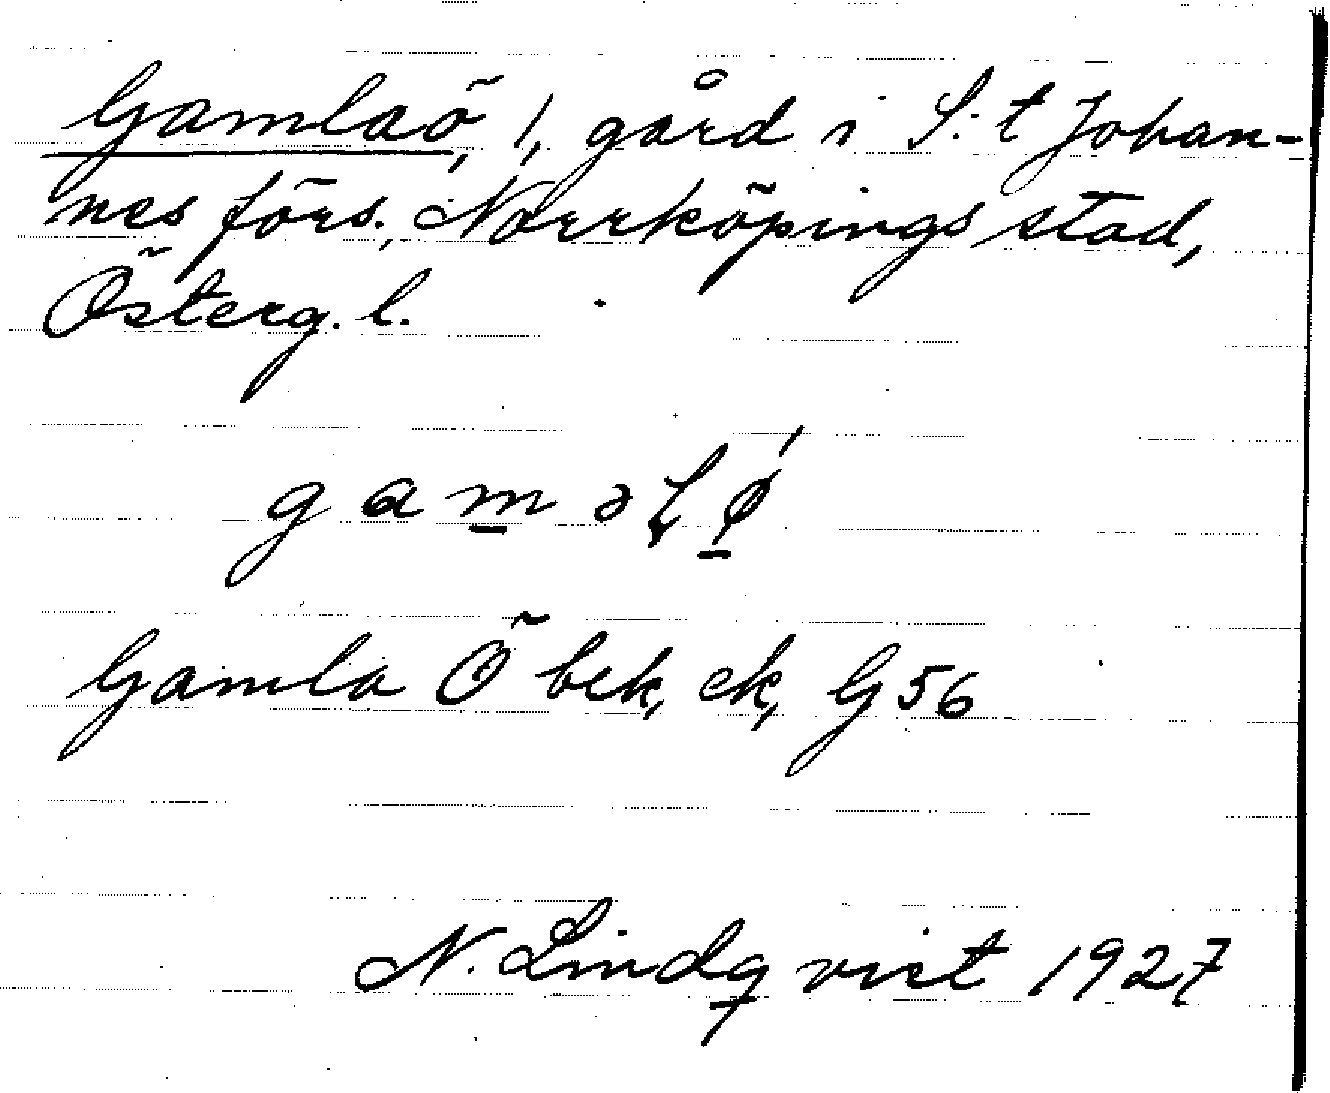 Gamlaö, 1, gård i S:t Johan-
nes förs., Norrköpings stad,
Österg. l.
gaməLǿ̲
Gamla Ö bek, ek, G 56
N. Lindqvist 1927